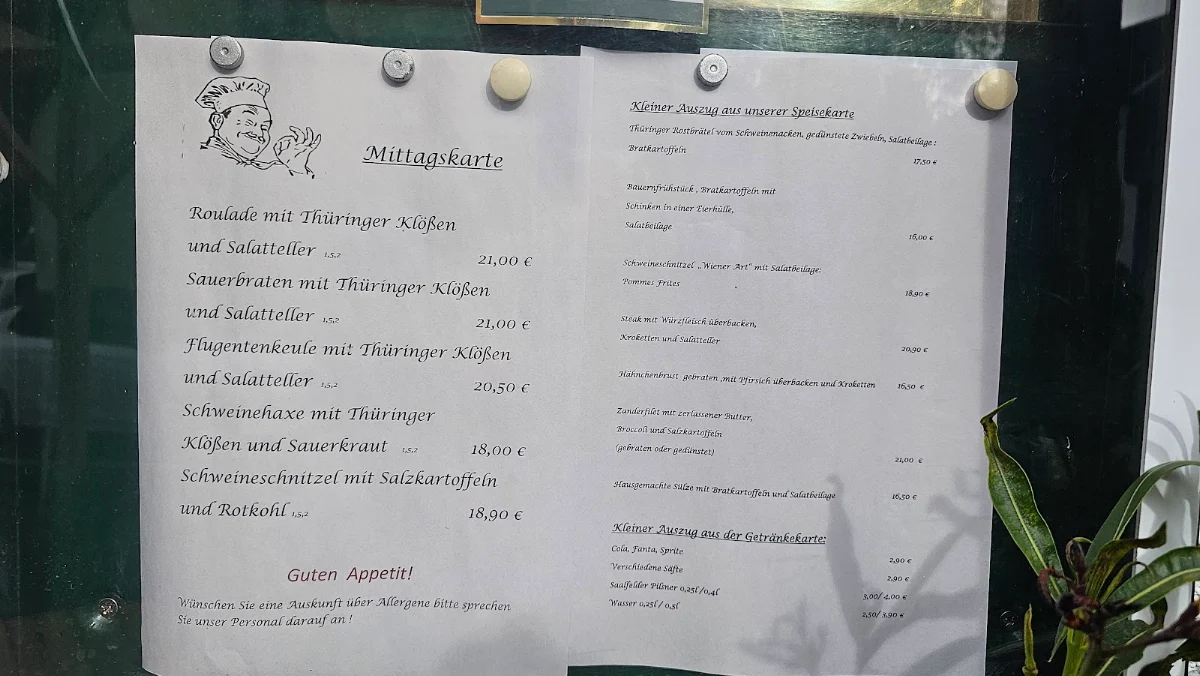 Mittagskarte
Roulade mit Thüringer Klößen
und Salatteller 1,5,2 21,00 €
Sauerbraten mit Thüringer Klößen
und Salatteller 1,5,2 21,00 €
Flugentenkeule mit Thüringer Klößen
und Salatteller 1,5,2 20,50 €
Schweinehaxe mit Thüringer
Klößen und Sauerkraut 1,5,2 18,00 €
Schweineschnitzel mit Salzkartoffeln
und Rotkohl 1,5,2 18,90 €
Guten Appetit!
Wünschen Sie eine Auskunft über Allergene bitte sprechen
Sie unser Personal darauf an !
Kleiner Auszug aus unserer Speisekarte
Thüringer Rostbrätel vom Schweinenacken, gedünstete Zwiebeln, Salatbeilage :
Bratkartoffeln 17,50 €
Bauernfrühstück , Bratkartoffeln mit
Schinken in einer Eierhülle,
Salatbeilage 16,00 €
Schweineschnitzel „Wiener Art" mit Salatbeilage:
Pommes Frites 18,90 €
Steak mit Würzfleisch überbacken,
Kroketten und Salatteller 20,90 €
Hähnchenbrust gebraten ,mit Pfirsich überbacken und Kroketten 16,50 €
Zanderfilet mit zerlassener Butter,
Broccoli und Salzkartoffeln
(gebraten oder gedünstet) 21,00 €
Hausgemachte Sülze mit Bratkartoffeln und Salatbeilage 16,50 €
Kleiner Auszug aus der Getränkekarte:
Cola, Fanta, Sprite 2,90 €
Verschiedene Säfte 2,90 €
Saalfelder Pilsner 0,25l /0,4l 3,00/ 4,00 €
Wasser 0,25l / 0,5l 2,50/ 3,90 €